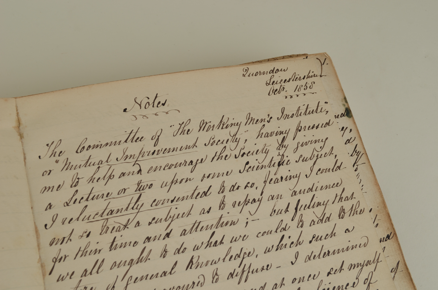 Quorndon
Leicestershire
Oct. 1858
Notes.
The Committee of "The Working Men's Institute",
or "Mutual Improvement Society", having pressed
me to help and encourage the Society by giving
a Lecture or two upon some Scientific subject,
I reluctantly consented to do so, fearing I could
not so treat a subject as to repay an audience
for this time and attention; – but feeling that
we all ought to do what we could to add to the
of General Knowledge, which such a
to diffuse – I determined
and at once set myself
of